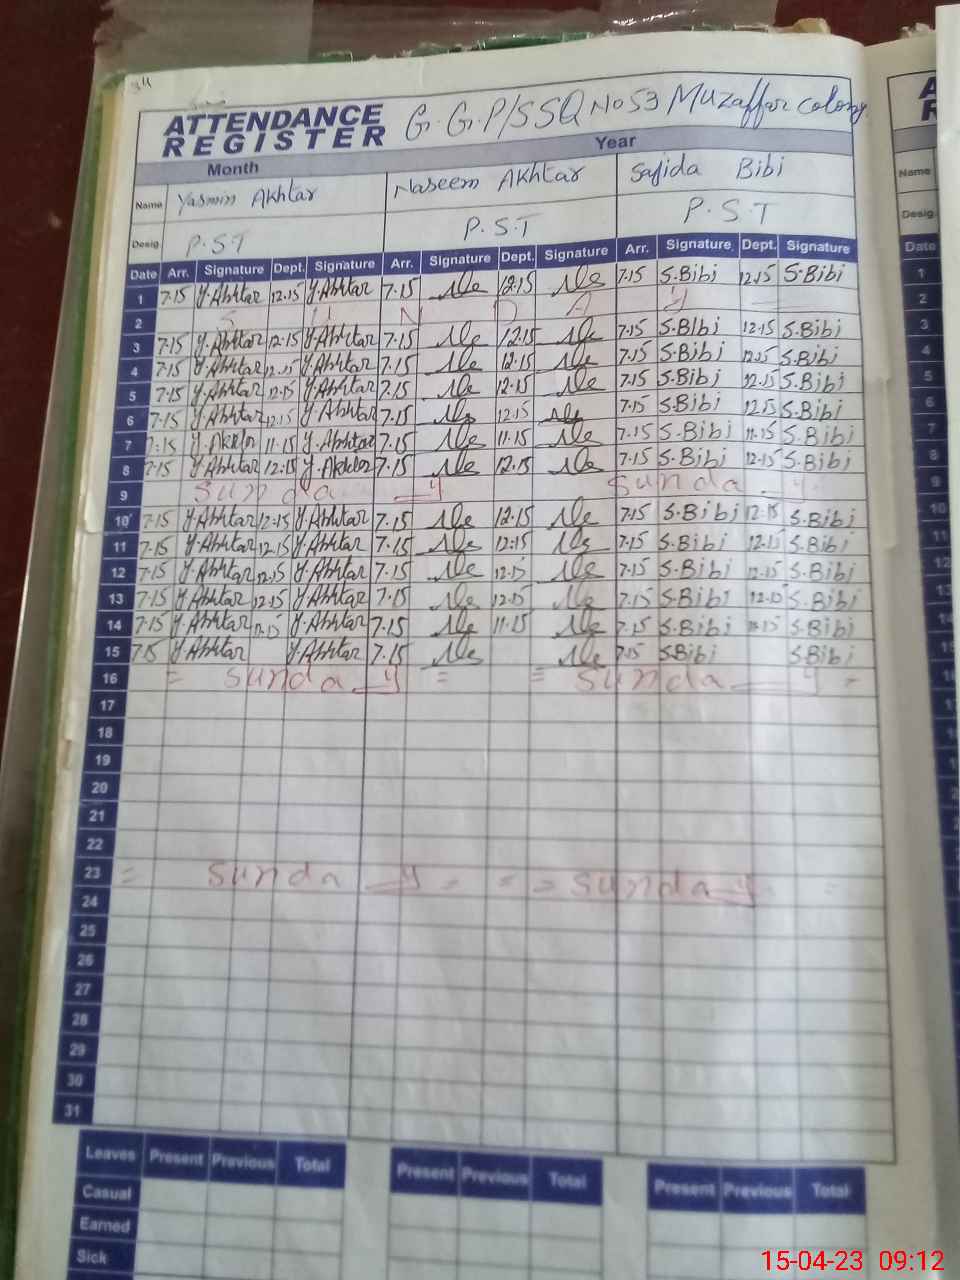 ATTENDANCE REGISTER G.G.P/S SQ No 53 Muzaffar colony
Month Year
Name Yasmin Akhtar Naseem Akhtar Sajida Bibi
Desig. P.S.T P.S.T P.S.T
Date Arr. Signature Dept. Signature Arr. Signature Dept. Signature Arr. Signature Dept. Signature
1 7.15 Y.Akhtar 12.15 Y.Akhtar 7.15 12.15 7.15 S.Bibi 12.15 S.Bibi
2 S U N D A Y
3 7.15 Y.Akhtar 12.15 Y.Akhtar 7.15 12.15 7.15 S.Bibi 12.15 S.Bibi
4 7.15 Y.Akhtar 12.15 Y.Akhtar 7.15 12.15 7.15 S.Bibi 12.15 S.Bibi
5 7.15 Y.Akhtar 12.15 Y.Akhtar 7.15 12.15 7.15 S.Bibi 12.15 S.Bibi
6 7.15 Y.Akhtar 12.15 Y.Akhtar 7.15 12.15 7.15 S.Bibi 12.15 S.Bibi
7 7.15 Y.Akhtar 11.15 Y.Akhtar 7.15 11.15 7.15 S.Bibi 11.15 S.Bibi
8 7.15 Y.Akhtar 12.15 Y.Akhtar 7.15 12.15 7.15 S.Bibi 12.15 S.Bibi
9 Sunda y Sunda y
10 7.15 Y.Akhtar 12.15 Y.Akhtar 7.15 12.15 7.15 S.Bibi 12.15 S.Bibi
11 7.15 Y.Akhtar 12.15 Y.Akhtar 7.15 12.15 7.15 S.Bibi 12.15 S.Bibi
12 7.15 Y.Akhtar 12.15 Y.Akhtar 7.15 12.15 7.15 S.Bibi 12.15 S.Bibi
13 7.15 Y.Akhtar 12.15 Y.Akhtar 7.15 12.15 7.15 S.Bibi 12.15 S.Bibi
14 7.15 Y.Akhtar 11.15 Y.Akhtar 7.15 11.15 7.15 S.Bibi 11.15 S.Bibi
15 7.15 Y.Akhtar Y.Akhtar 7.15 7.15 S.Bibi S.Bibi
16 = Sunda y = = Sunda y =
17
18
19
20
21
22
23 = Sunda y = = = Sunda y =
24
25
26
27
28
29
30
31
Leaves Present Previous Total Present Previous Total Present Previous Total
Casual
Earned
Sick
15-04-23 09:12